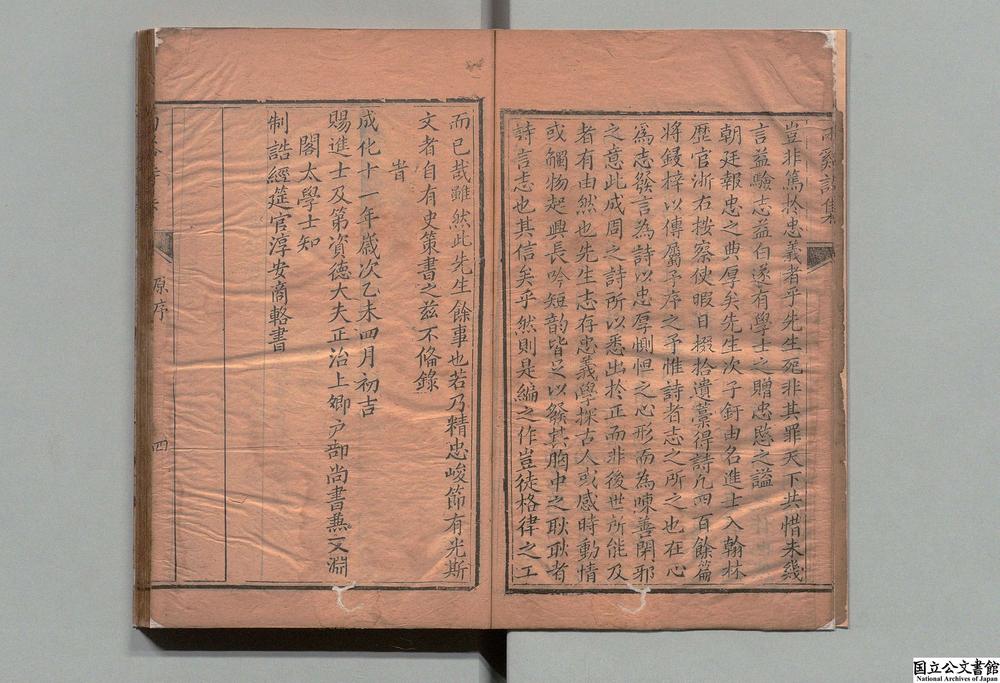 豈非篤於忠義者乎先生死非其罪天下共惜未幾
言益驗志益白遂有學士之贈忠愍之謚
朝廷報忠之典厚矣先生次子釪由名進士入翰林
歷官浙右按察使暇日掇拾遺藁得詩凡四百餘篇
將鋟梓以傳屬予序之予惟詩者志之所之也在心
爲志發言為詩以忠厚惻怛之心形而為陳善閑邪
之意此成周之詩所以悉出於正而非後世所能及
者有由然也先生志存忠義學探古人或感時動情
或觸物起興長吟短韵皆足以發其胸中之耿耿者
詩言志也其信矣乎然則是編之作豈徒格律之工
而已哉雖然此先生餘事也若乃精忠峻節有光斯
文者自有史策書之兹不俻錄
旹
成化十一年歲次乙未四月初吉
賜進士及第資德大夫正治上卿户部尚書兼文淵
閣大學士知
制誥經筵官淳安商輅書
原序
四
国立公文書館
National Archives of Japan